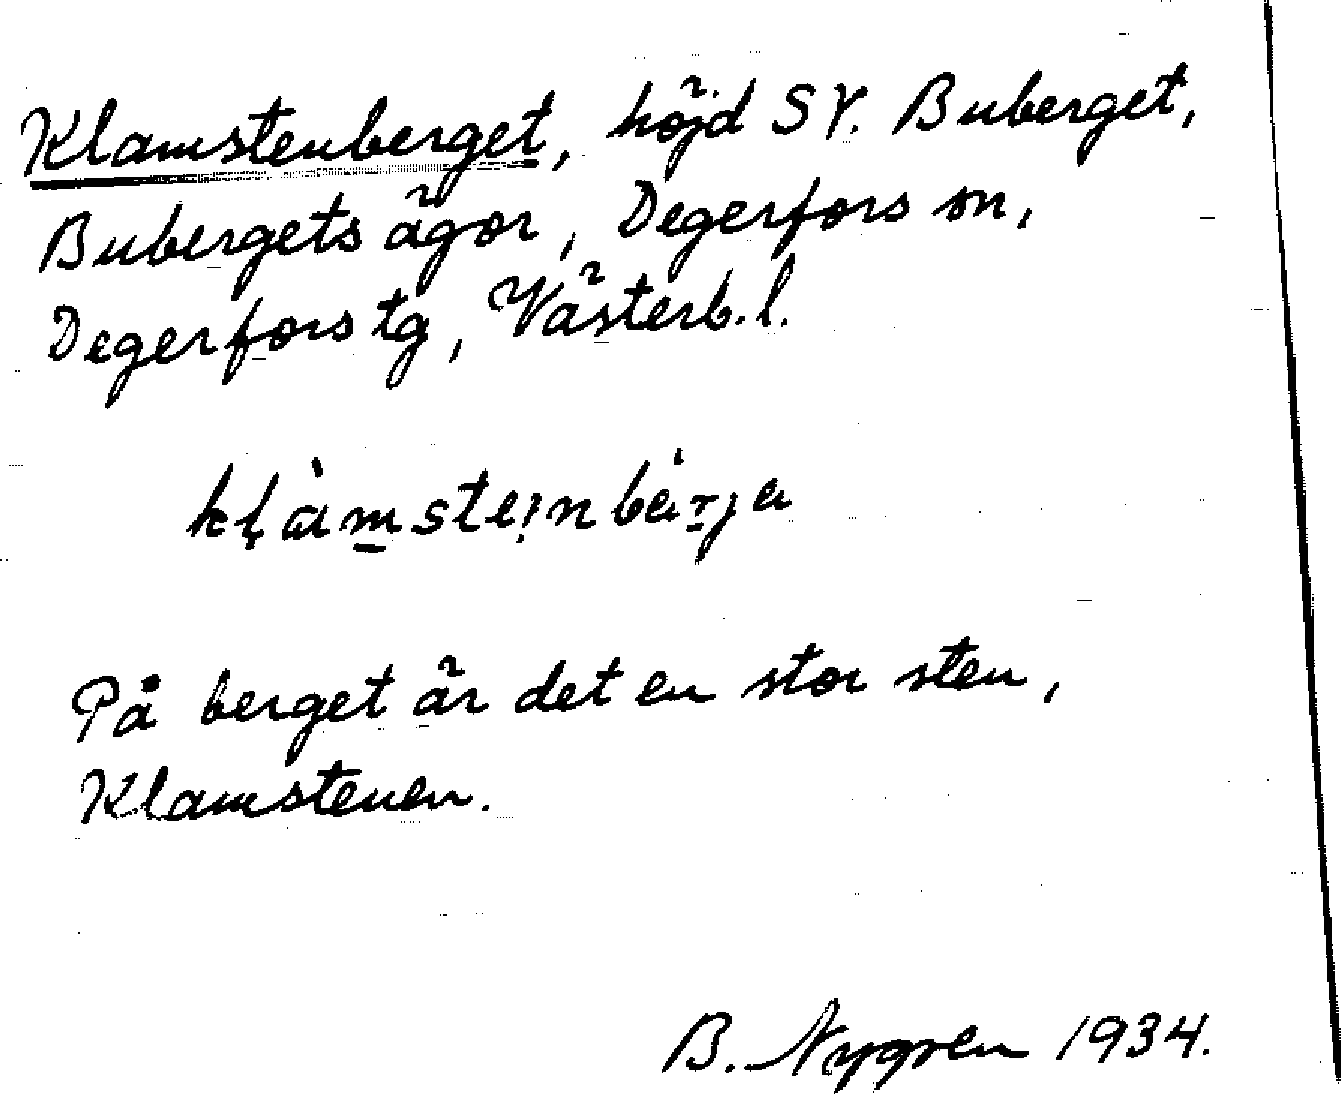 Klamstenberget, höjd SV. Buberget,
Bubergets ägor, Degerfors sn,
Degerfors tg, Västerb. l.
klàmsteinbärja
På berget är det en stor sten,
Klamstenen.
B. Nygren 1934.